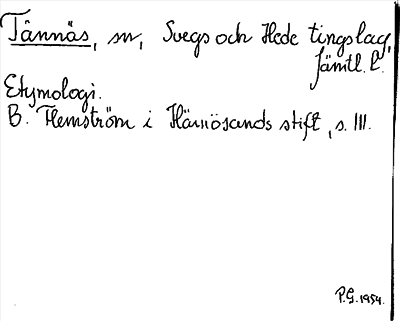 Tännäs, sn, Svegs och Hede tingslag,
Jämtl. l.
Etymologi.
B. Flemström i Härnösands stift, s. 111.
P.G. 1954.